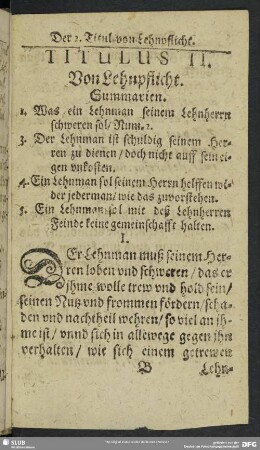 Der 2. Titul von Lehnpflicht.
TITULUS II.
Von Lehnpflicht.
Summarien.
1. Was ein Lehnman seinem Lehnherrn
schweren sol / Num. 2.
3. Der Lehnman ist schüldig seinem Her-
ren zu dienen / doch nicht auff sein ei-
gen vnkosten.
4. Ein Lehnman sol seinem Herrn helffen wi-
der jederman / wie das zuvorstehen.
5. Ein Lehnman sol mit deß Lehnherren
Feinde keine gemeinschafft halten.
I.
DEr Lehnman muß seinem Her-
ren loben vnd schweren / das er
jhme wolle trew vnd hold sein /
seinen Nutz vnd frommen fördern / scha-
den vnd nachtheil wehren / so viel an jh-
me ist / vnnd sich in allewege gegen jhn
verhalten / wie sich einem getrewen
B Lehn-
SLUB
DFG